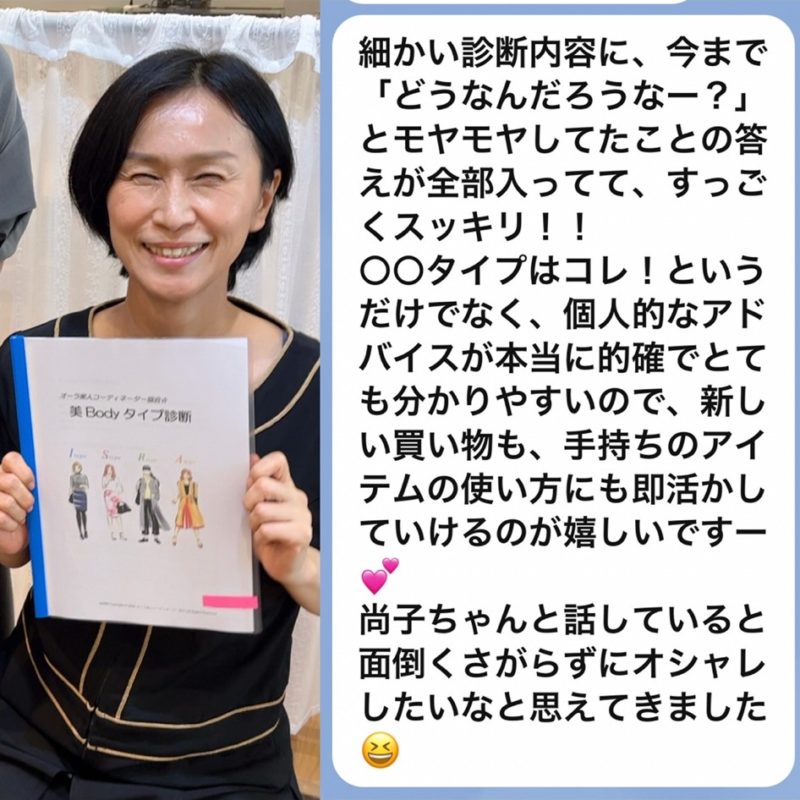 美Bodyタイプ診断
細かい診断内容に、今まで
「どうなんだろうなー？」
とモヤモヤしてたことの答
えが全部入ってて、すっご
くスッキリ！！
〇〇タイプはコレ！という
だけでなく、個人的なアド
バイスが本当に的確でとて
も分かりやすいので、新し
い買い物も、手持ちのアイ
テムの使い方にも即活かし
ていけるのが嬉しいですー
💕
尚子ちゃんと話していると
面倒くさがらずにオシャレ
したいなと思えてきました
😆